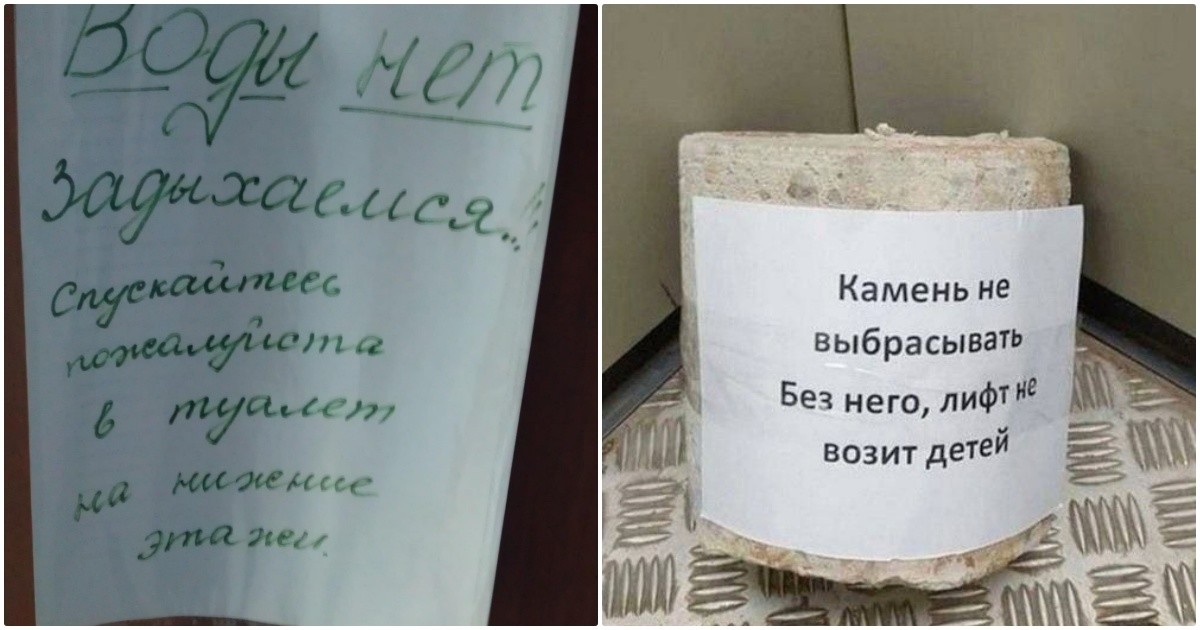 Воды нет
Задыхаемся..!
Спускайтесь
пожалуйста
в туалет
на нижение
этажи.
Камень не
выбрасывать
Без него, лифт не
возит детей